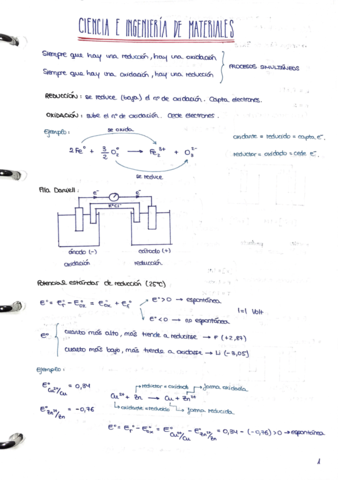 CIENCIA E INGENIERÍA DE MATERIALES
Siempre que hay una reducción, hay una oxidación
Siempre que hay una oxidación, hay una reducción
PROCESOS SIMULTÁNEOS
REDUCCIÓN: se reduce (baja) el nº de oxidación. Capta electrones.
OXIDACIÓN: sube el nº de oxidación. Cede electrones.
Ejemplo:
se oxida
2Fe⁰ + 3/2 O₂⁰ → Fe₂³⁺ + O₃²⁻
se reduce
oxidante = reducido = capta e⁻.
reductor = oxidado = cede e⁻.
Pila Daniell:
e⁻ e⁻
ánodo (-) cátodo (+)
oxidación reducción
Potenciales estándar de reducción (25ºC)
E° = E°r - E°ox = E°ox + E°r
E° > 0 → espontánea
E° < 0 → no espontánea
Volt
E°: cuanto más alto, más tiende a reducirse → F (+2,87)
cuanto más bajo, más tiende a oxidarse → Li (-3,05)
Ejemplo:
E° Cu²⁺/Cu = 0,34
E° Zn²⁺/Zn = -0,76
reductor = oxidado forma oxidada
Cu²⁺ + Zn → Cu + Zn²⁺
oxidante = reducido forma reducida
E° = E°r - E°ox = E° Cu²⁺/Cu - E° Zn²⁺/Zn = 0,34 - (-0,76) > 0 → espontánea
1